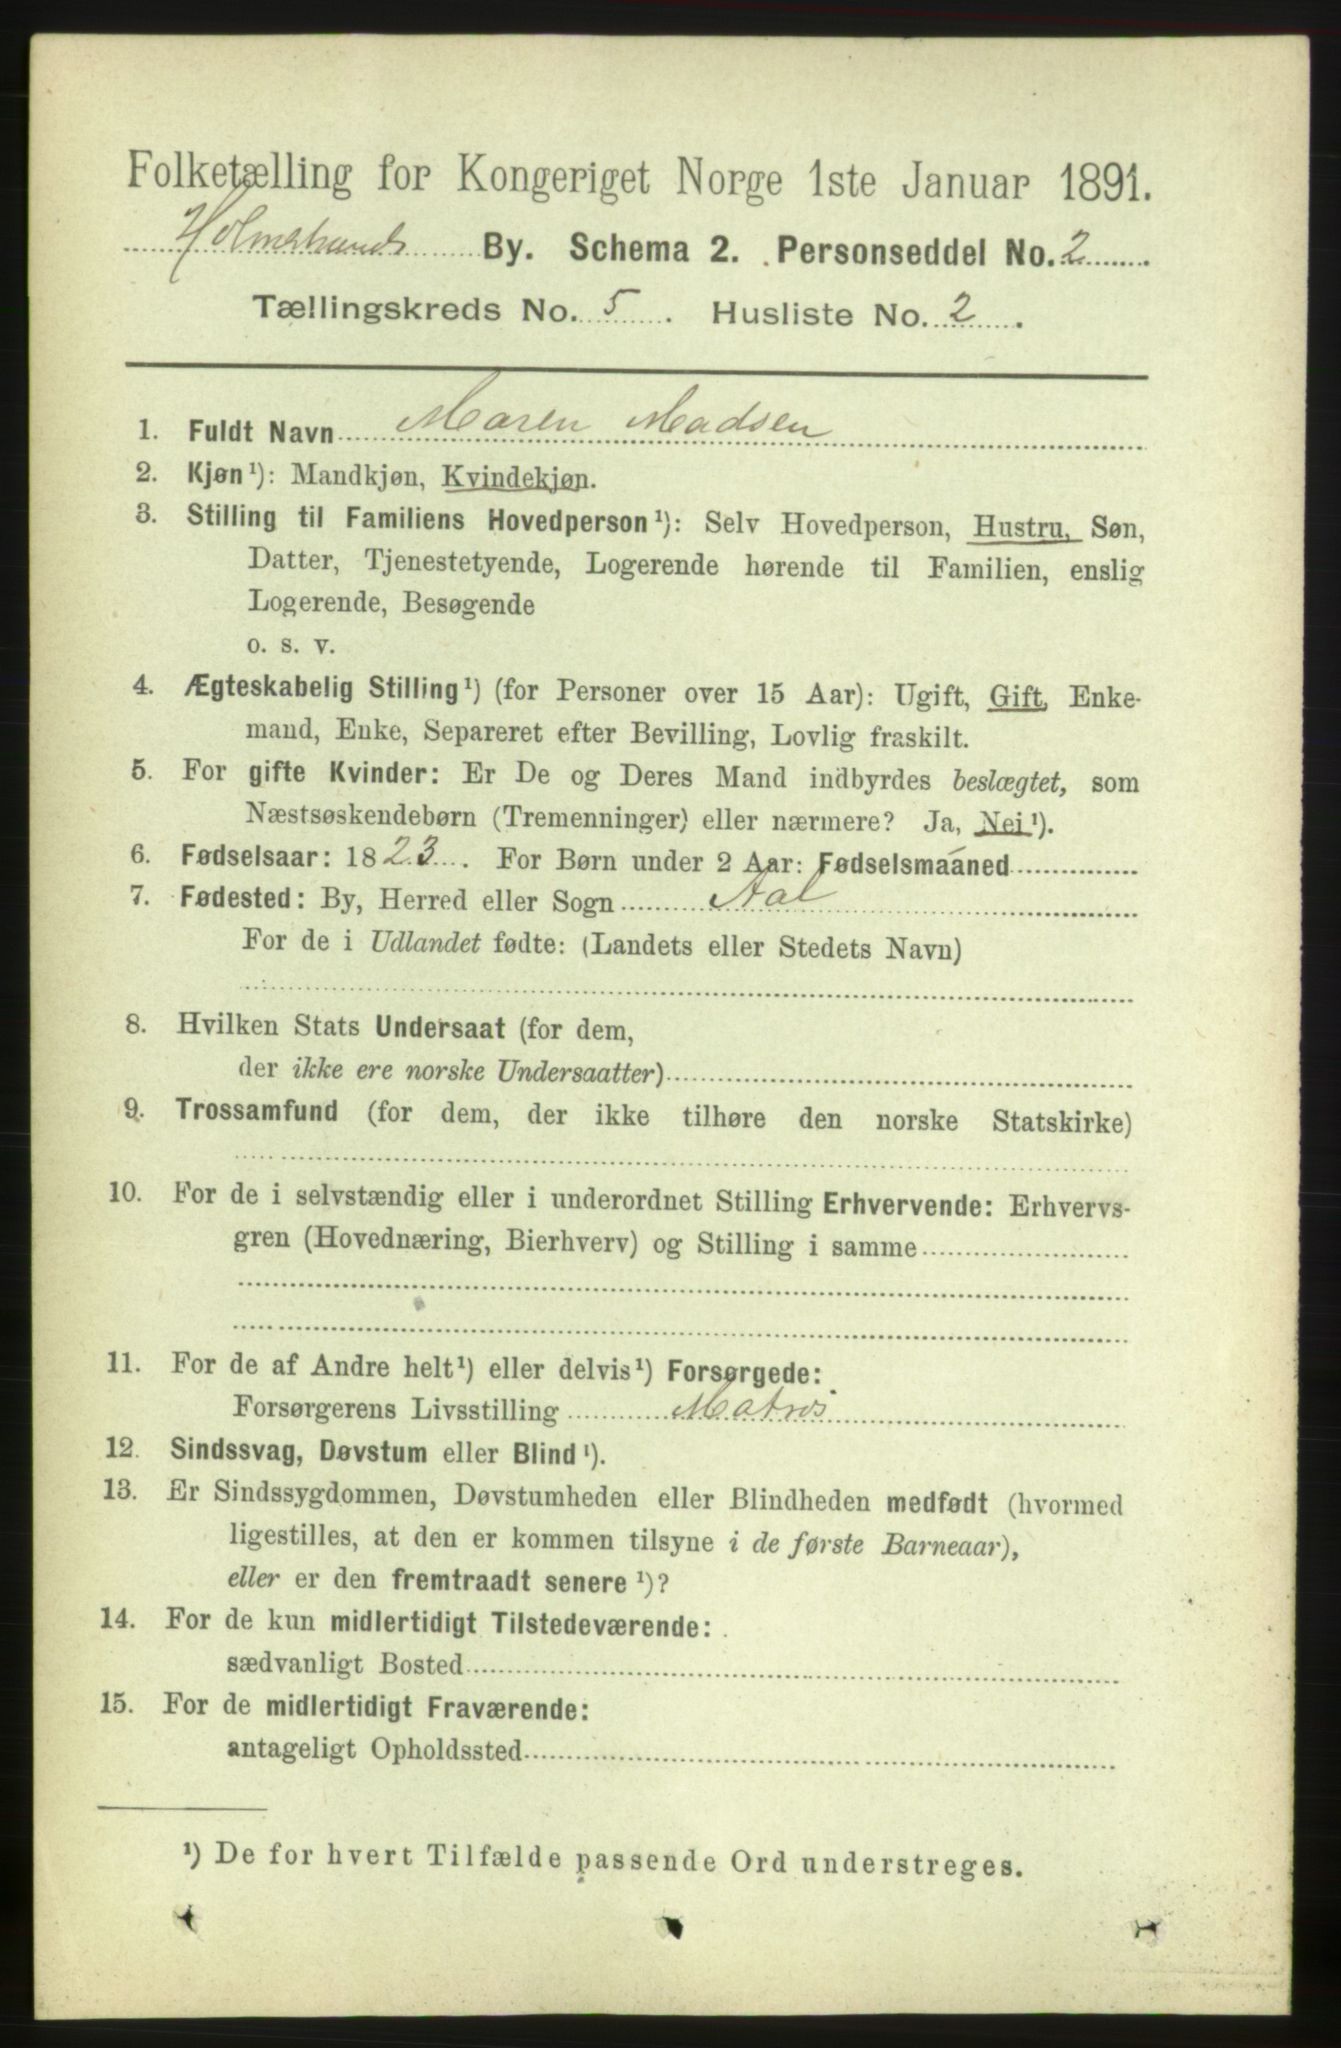 Folketælling for Kongeriget Norge 1ste Januar 1891.
Holmestrands By. Schema 2. Personseddel No. 2
Tællingskreds No. 5. Husliste No. 2.
1. Fuldt Navn Maren Madsen
2. Kjøn¹): Mandkjøn, Kvindekjøn.
3. Stilling til Familiens Hovedperson¹): Selv Hovedperson, Hustru, Søn,
Datter, Tjenestetyende, Logerende hørende til Familien, enslig
Logerende, Besøgende
o. s. v.
4. Ægteskabelig Stilling¹) (for Personer over 15 Aar): Ugift, Gift, Enke-
mand, Enke, Separeret efter Bevilling, Lovlig fraskilt.
5. For gifte Kvinder: Er De og Deres Mand indbyrdes beslægtet, som
Næstsøskendebørn (Tremenninger) eller nærmere? Ja, Nei¹).
6. Fødselsaar: 1823. For Børn under 2 Aar: Fødselsmaaned
7. Fødested: By, Herred eller Sogn Aal
For de i Udlandet fødte: (Landets eller Stedets Navn)
8. Hvilken Stats Undersaat (for dem,
der ikke ere norske Undersaatter)
9. Trossamfund (for dem, der ikke tilhøre den norske Statskirke)
10. For de i selvstændig eller i underordnet Stilling Erhvervende: Erhvervs-
gren (Hovednæring, Bierhverv) og Stilling i samme
11. For de af Andre helt¹) eller delvis¹) Forsørgede:
Forsørgerens Livsstilling Matros
12. Sindssvag, Døvstum eller Blind¹).
13. Er Sindssygdommen, Døvstumheden eller Blindheden medfødt (hvormed
ligestilles, at den er kommen tilsyne i de første Barneaar),
eller er den fremtraadt senere¹)?
14. For de kun midlertidigt Tilstedeværende:
sædvanligt Bosted
15. For de midlertidigt Fraværende:
antageligt Opholdssted
¹) De for hvert Tilfælde passende Ord understreges.